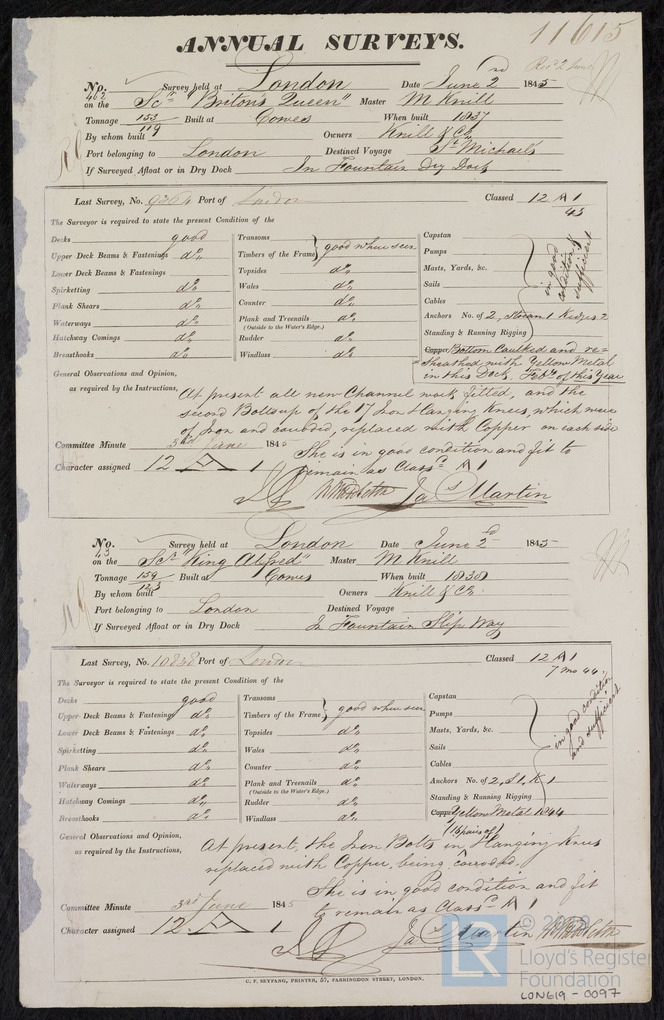 11615
ANNUAL SURVEYS.
Rec'd 2 June
No. 462 Survey held at London Date June 2nd 1845
on the Scr "Briton's Queen" Master M Knill
Tonnage 153/119 Built at Cowes When built 1837
By whom built Owners Knill & Co.
Port belonging to London Destined Voyage St Michaels
If Surveyed Afloat or in Dry Dock In Fountain Dry Dock
Last Survey, No. 9264 Port of London Classed 12 A 1
45
The Surveyor is required to state the present Condition of the
Decks good
Upper Deck Beams & Fastenings do.
Lower Deck Beams & Fastenings
Spirketting do.
Plank Shears do.
Waterways do.
Hatchway Comings do.
Breasthooks do.
Transoms
Timbers of the Frame } good where seen
Topsides do.
Wales do.
Counter do.
Plank and Treenails do.
(Outside to the Water's Edge.)
Rudder do.
Windlass do.
Capstan
Pumps
Masts, Yards, &c.
Sails
Cables
in good condition & sufficient
Anchors No. of 2, Stream 1 Kedges 2
Standing & Running Rigging
Copper Bottom Caulked and re=
=sheathed with Yellow Metal
in this Dock, Feby. of this Year
General Observations and Opinion,
as required by the Instructions,
At present all new Channel work fitted, and the
second Bolts up of the 17 Iron Hanging Knees, which were
of Iron and corroded, replaced with Copper on each side
She is in good condition and fit to
remain as Classd. A 1
Committee Minute 3rd June 1845
Character assigned 12 A 1
Jas. Martin
No. 43 Survey held at London Date June 2nd 1845
on the Scr "King Alfred" Master M Knill
Tonnage 159/123 Built at Cowes When built 1838
By whom built Owners Knill & Co.
Port belonging to London Destined Voyage
If Surveyed Afloat or in Dry Dock In Fountain Slip Way
Last Survey, No. 10838 Port of London Classed 12 A 1
7 mo 44
The Surveyor is required to state the present Condition of the
Decks good
Upper Deck Beams & Fastenings do.
Lower Deck Beams & Fastenings do.
Spirketting do.
Plank Shears do.
Waterways do.
Hatchway Comings do.
Breasthooks do.
Transoms
Timbers of the Frame } good where seen
Topsides do.
Wales do.
Counter do.
Plank and Treenails do.
(Outside to the Water's Edge.)
Rudder do.
Windlass do.
Capstan
Pumps
Masts, Yards, &c.
Sails
Cables
in good condition and sufficient
Anchors No. of 2, S1, K1
Standing & Running Rigging
Copper Yellow Metal 1844
General Observations and Opinion,
as required by the Instructions,
(16 pairs of)
At present, the Iron Bolts in Hanging Knees
replaced with Copper, being corroded.
She is in good condition and fit
to remain as Classd. A 1
Committee Minute 3rd June 1845
Character assigned 12 A 1
Jas. Martin
C. F. SEYFANG, PRINTER, 57, FARRINGDON STREET, LONDON.
LR
© 2020
Lloyd's Register
Foundation
LON619-0097